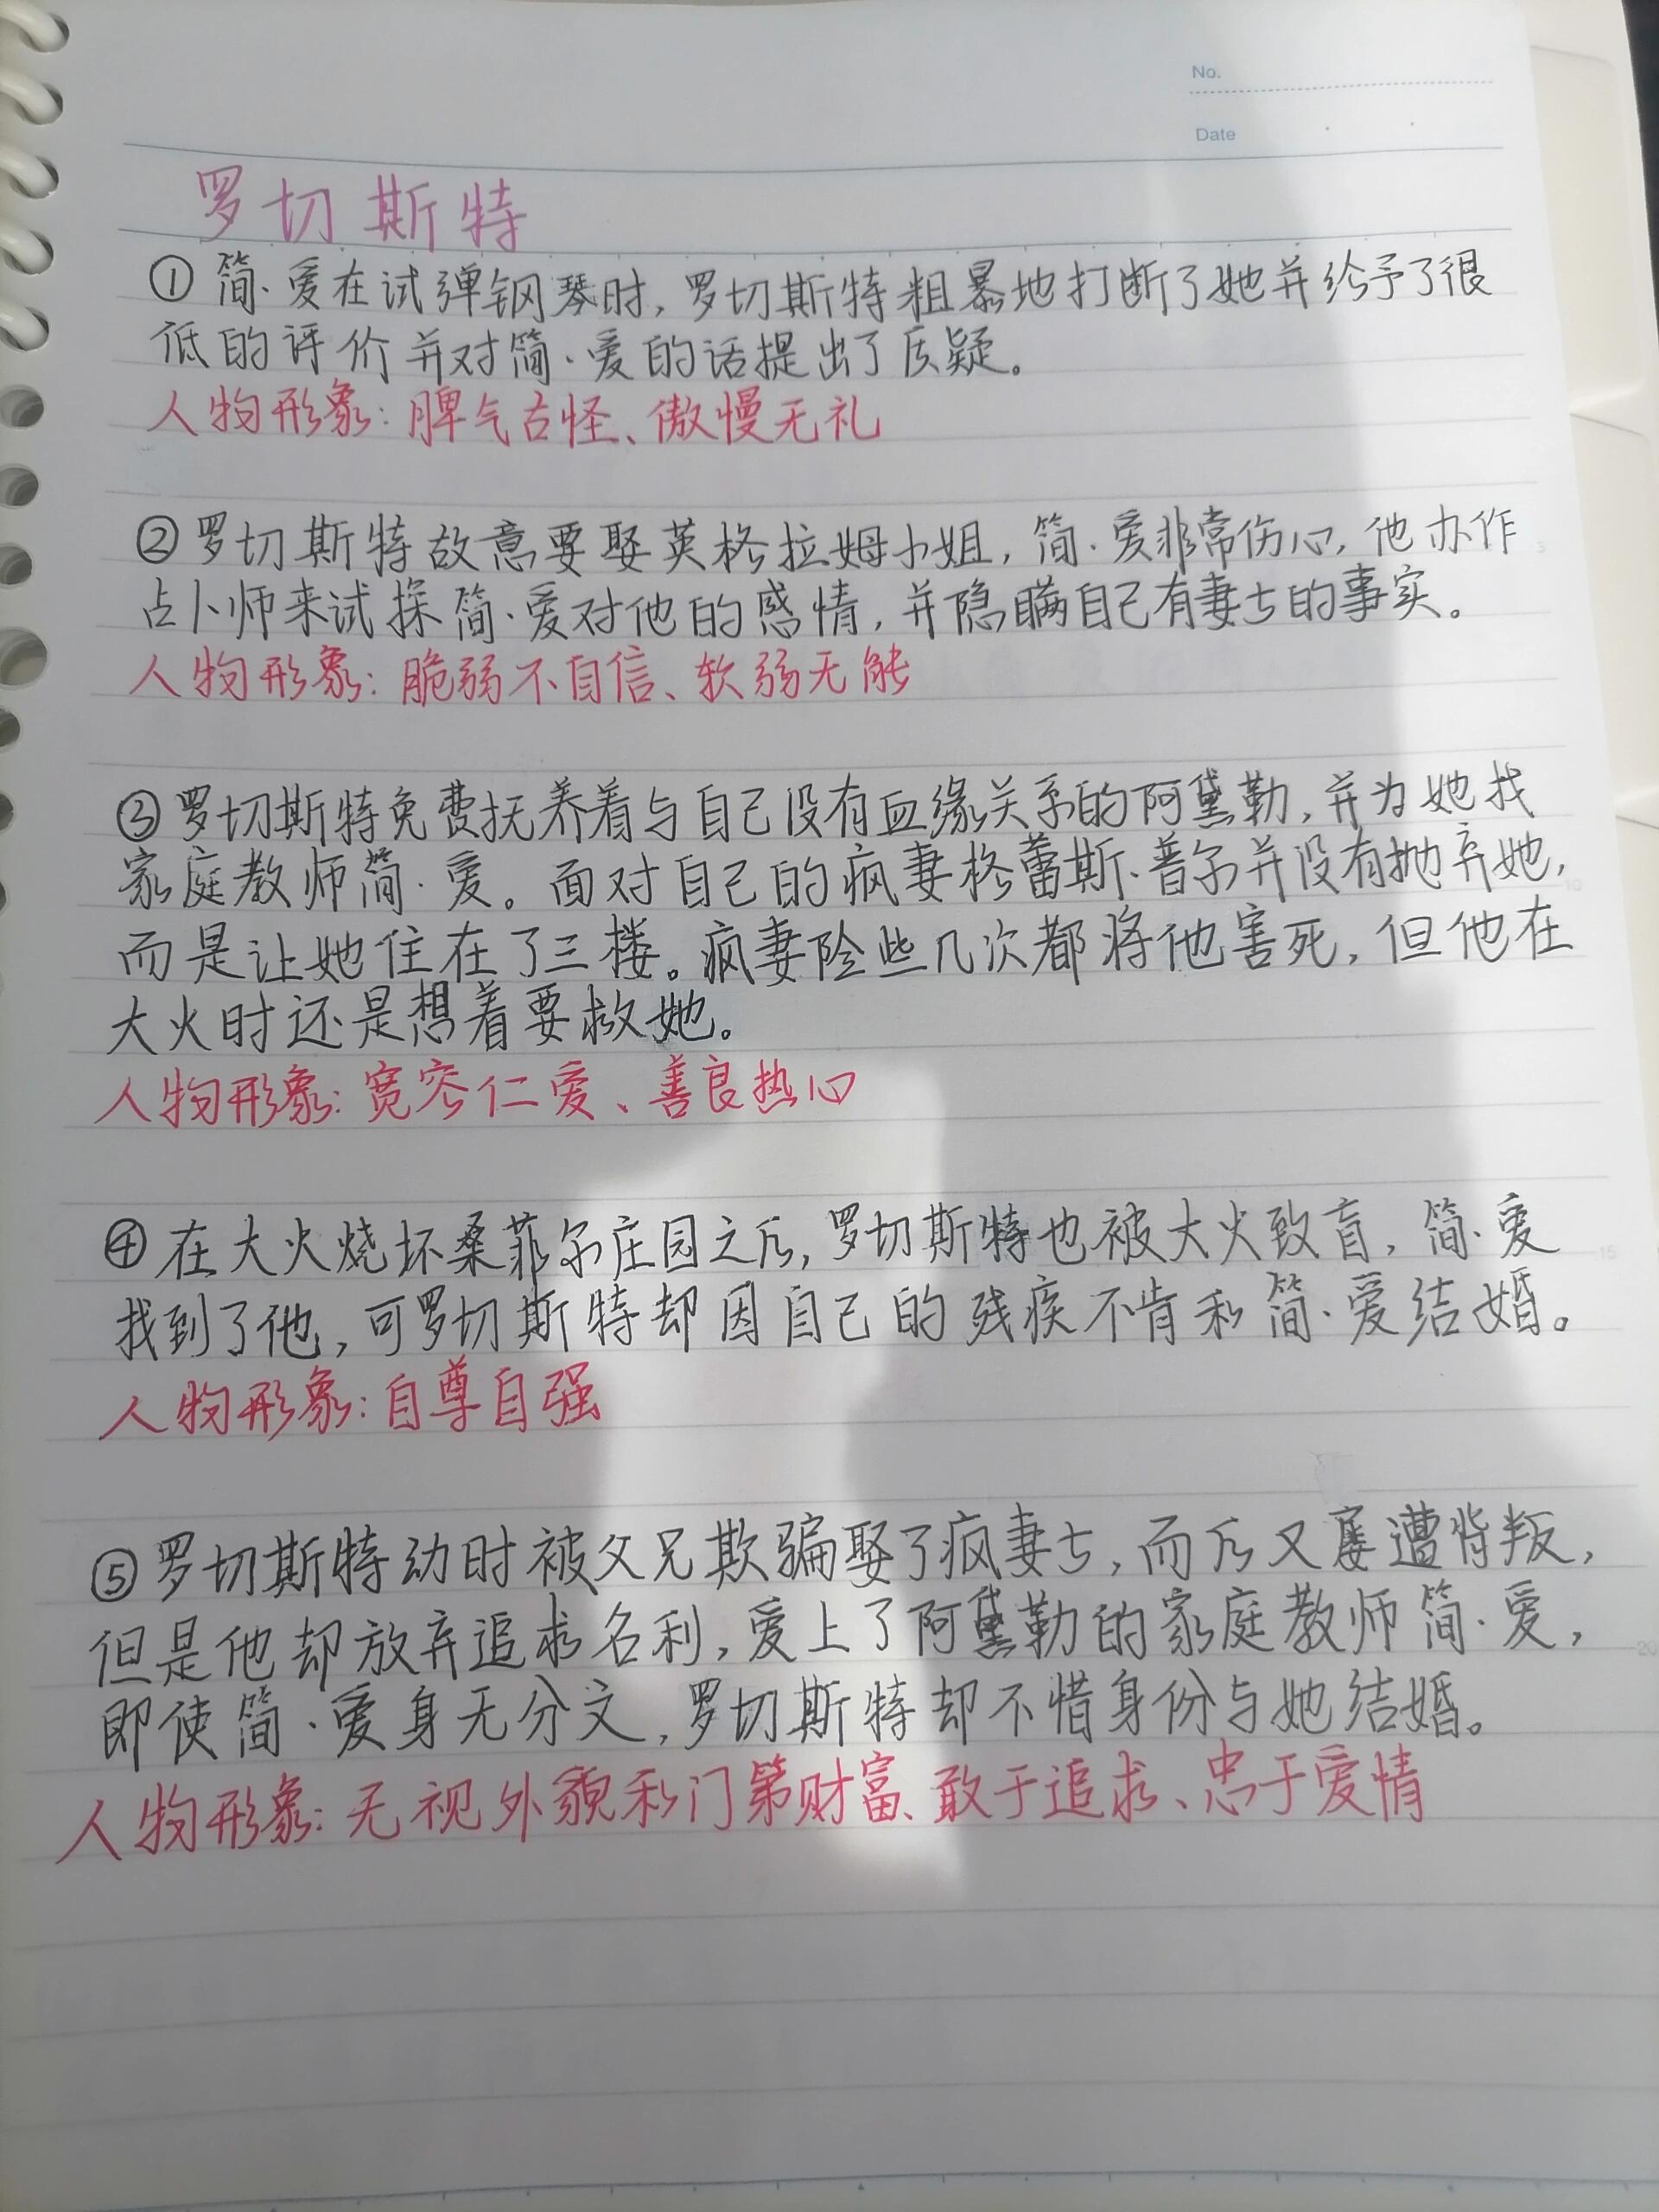 No.
Date
罗切斯特
①简·爱在试弹钢琴时,罗切斯特粗暴地打断了她并给予了很
低的评价并对简·爱的话提出了质疑。
人物形象:脾气古怪、傲慢无礼
②罗切斯特故意要娶英格拉姆小姐,简·爱非常伤心,他办作
占卜师来试探简·爱对他的感情,并隐瞒自己有妻士的事实。
人物形象:脆弱不自信、软弱无能
③罗切斯特免费抚养着与自己没有血缘关系的阿黛勒,并为她找
家庭教师简·爱。面对自己的疯妻格蕾斯·普尔并没有抛弃她,
而是让她住在了三楼。疯妻险些几次都将他害死,但他在
大火时还是想着要救她。
人物形象:宽容仁爱、善良热心
④在大火烧坏桑菲尔庄园之后,罗切斯特也被大火致盲,简·爱
找到了他,可罗切斯特却因自己的残疾不肯和简·爱结婚。
人物形象:自尊自强
⑤罗切斯特幼时被父兄欺骗娶了疯妻士,而后又屡遭背叛,
但是他却放弃追求名利,爱上了阿黛勒的家庭教师简·爱,
即使简·爱身无分文,罗切斯特却不惜身份与她结婚。
人物形象:无视外貌和门第财富、敢于追求、忠于爱情
5
10
15
20